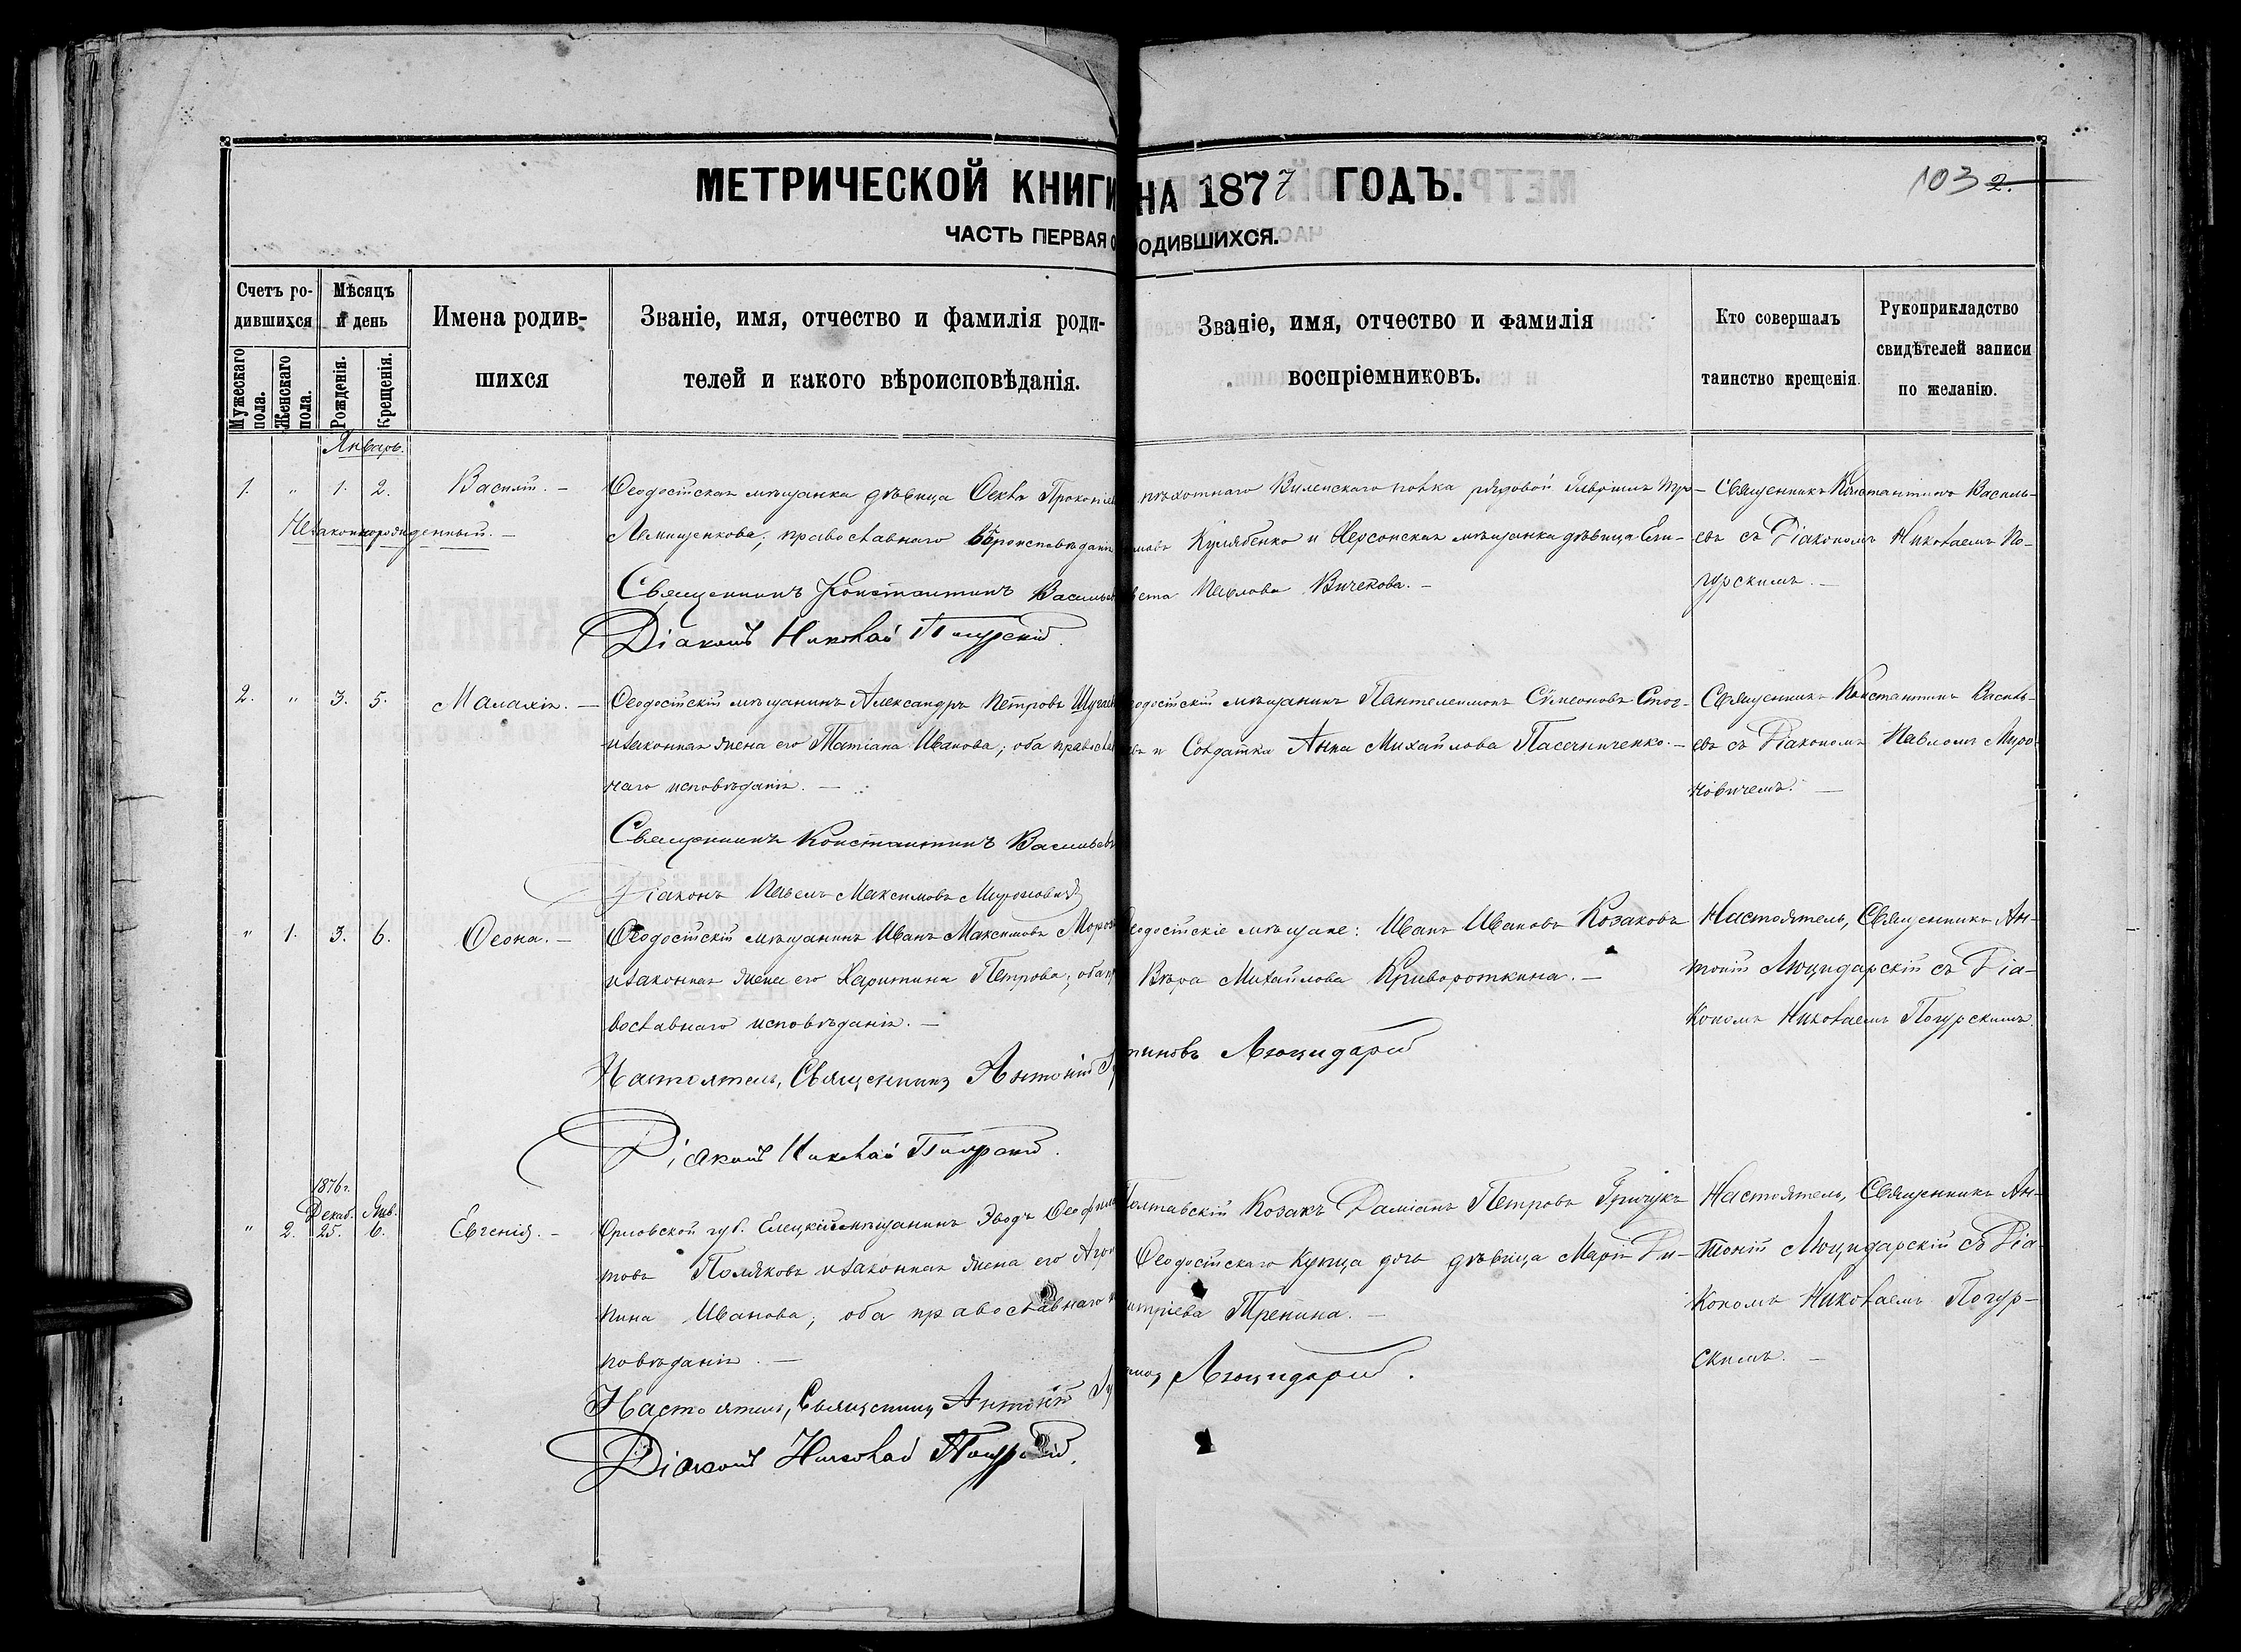 МЕТРИЧЕСКОЙ КНИГИ НА 1877 ГОДЪ.
103 2.
ЧАСТЬ ПЕРВАЯ О РОДИВШИХСЯ.
Счетъ родившихся
Мужескаго пола.
Женскаго пола.
Мѣсяцъ и день
Рожденія.
Крещенія.
Имена родив-
шихся
Званіе, имя, отчество и фамилія роди-
телей и какого вѣроисповѣданія.
Званіе, имя, отчество и фамилія
воспріемниковъ.
Кто совершалъ
таинство крещенія.
Рукоприкладство
свидѣтелей записи
по желанію.
Январь.
1. " 1. 2.
Василій. –
Незаконнорожденный. –
Ѳеодосійская мѣщанка дѣвица Ѳекла
Лемищенкова; православнаго вѣроисповѣданія
Священникъ Константинъ Васильевъ
Діаконъ Николай Погурскій.
пѣхотнаго Виленскаго полка рядовой
Кулябенко и Херсонская мѣщанка дѣвица Ели-
вета Павлова Вичекова. –
Священникъ Константинъ Василь-
евъ съ Діакономъ Николаемъ По-
гурскимъ. –
2. " 3. 5.
Малахія. –
Ѳеодосійскій мѣщанинъ Александръ Петровъ
и законная жена его Татіана Иванова; оба православ
наго исповѣданія. –
Священникъ Константинъ Васильевъ
Діаконъ Павелъ Максимовъ Мироновичъ
одосійскій мѣщанинъ Пантелеимонъ Сѵмеоновъ
и Солдатка Анна Михайлова Пасечниченко. –
Священникъ Константинъ Василь-
евъ съ Діакономъ Павломъ Миро-
новичемъ. –
" 1. 3. 6.
Ѳеона. –
Ѳеодосійскій мѣщанинъ Иванъ Максимовъ Мороз
и законная жена его Харитина Петрова; оба пр
вославнаго исповѣданія. –
Настоятель, Священникъ Антоній
Діаконъ Николай Погурскій.
еодосійскіе мѣщане: Иванъ Ивановъ Козаковъ
Вѣра Михайлова Криворoткина. –
тиновъ Люцидарій
Настоятель, Священникъ Ан-
тоній Люцидарскій съ Діа-
кономъ Николаемъ Погурскимъ.
1876 г.
Декаб. Янв.
" 2. 25. 6.
Евгенія. –
Орловской губ. Елецкій мѣщанинъ
товъ Поляковъ и законная жена его Агри
пина Иванова; оба православнаго
повѣданія. –
Настоятель, Священникъ Антоній
Діаконъ Николай Погурскій.
Полтавскій Козакъ Даміанъ Петровъ Гричукъ
Ѳеодосійскаго Купца дочь дѣвица Марія Ди-
митріева Тренина. –
Люцидарій.
Настоятель, Священникъ Ан-
тоній Люцидарскій съ Діа-
кономъ Николаемъ Погур-
скимъ. –